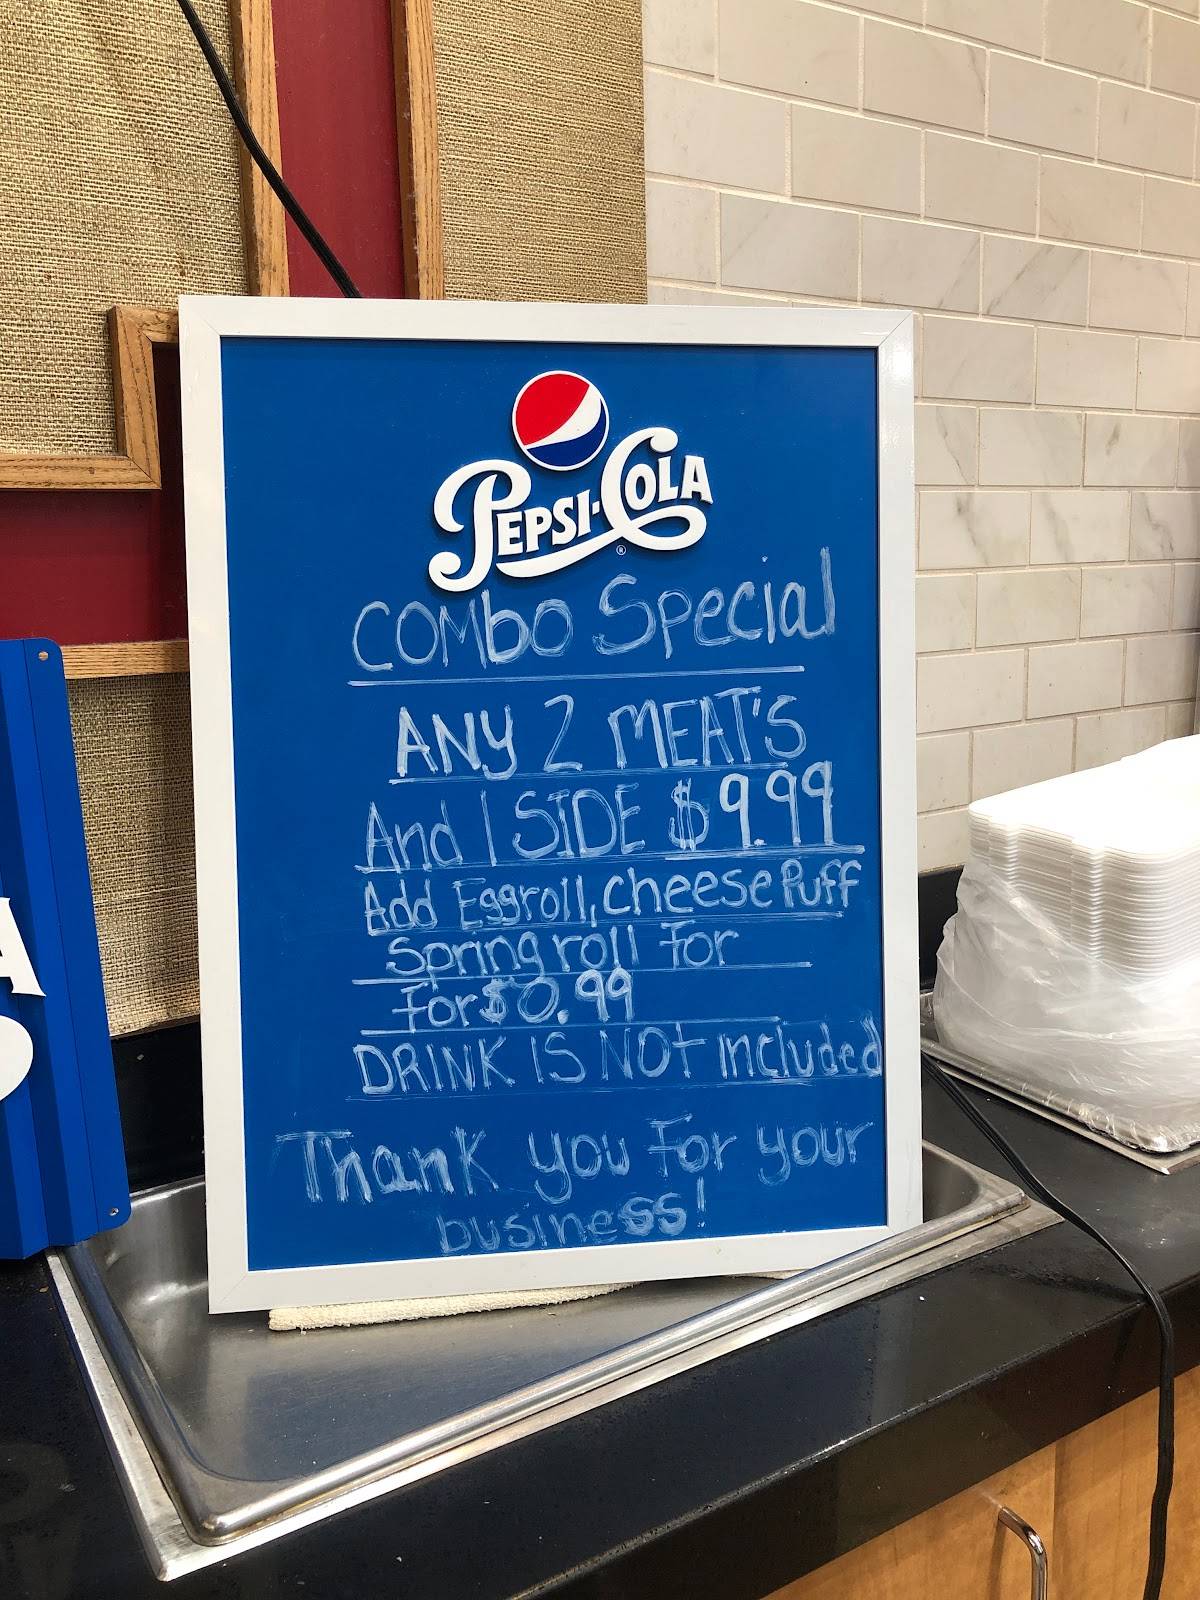 PEPSI-COLA
®
COMbO Special
ANY 2 MEAT'S
And 1 SIDE $9.99
Add Eggroll, cheese Puff
Spring roll For
For $0.99
DRINK IS NOT included
Thank you For your
business!
A